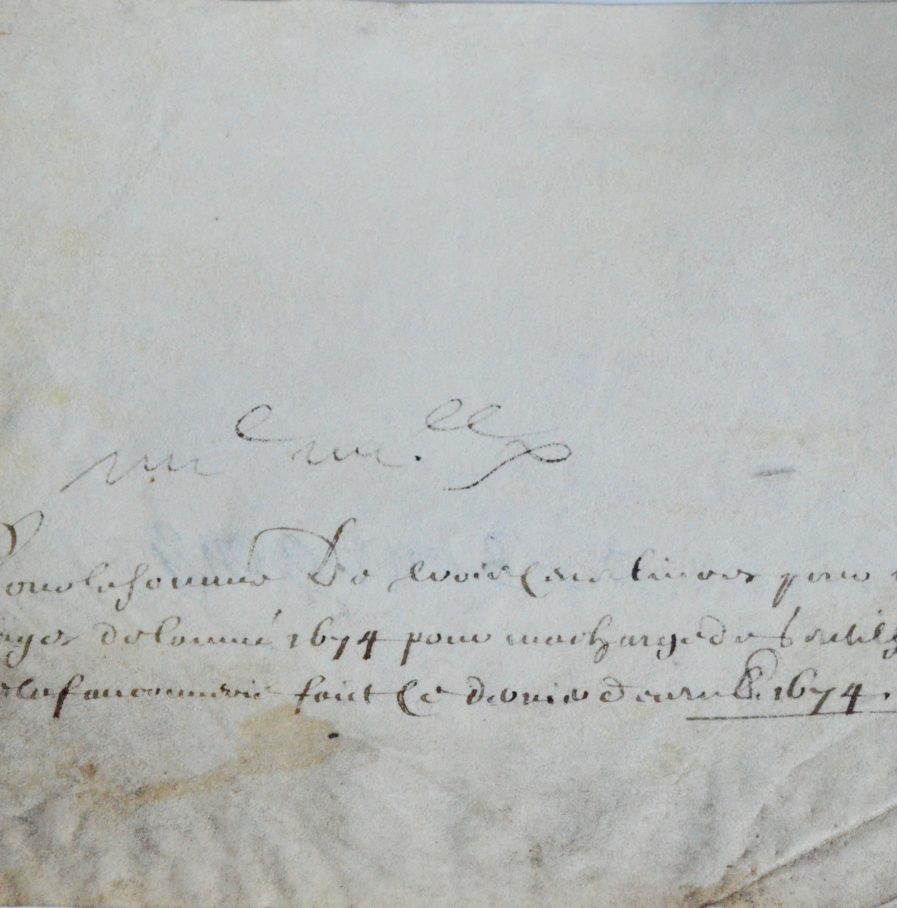 iiic iii.ccl
Pour la somme De trois Cens livres pour
ages de lanné 1674 pour ma charge de
de la fauconnerie fait Ce dernier Decemb. 1674.